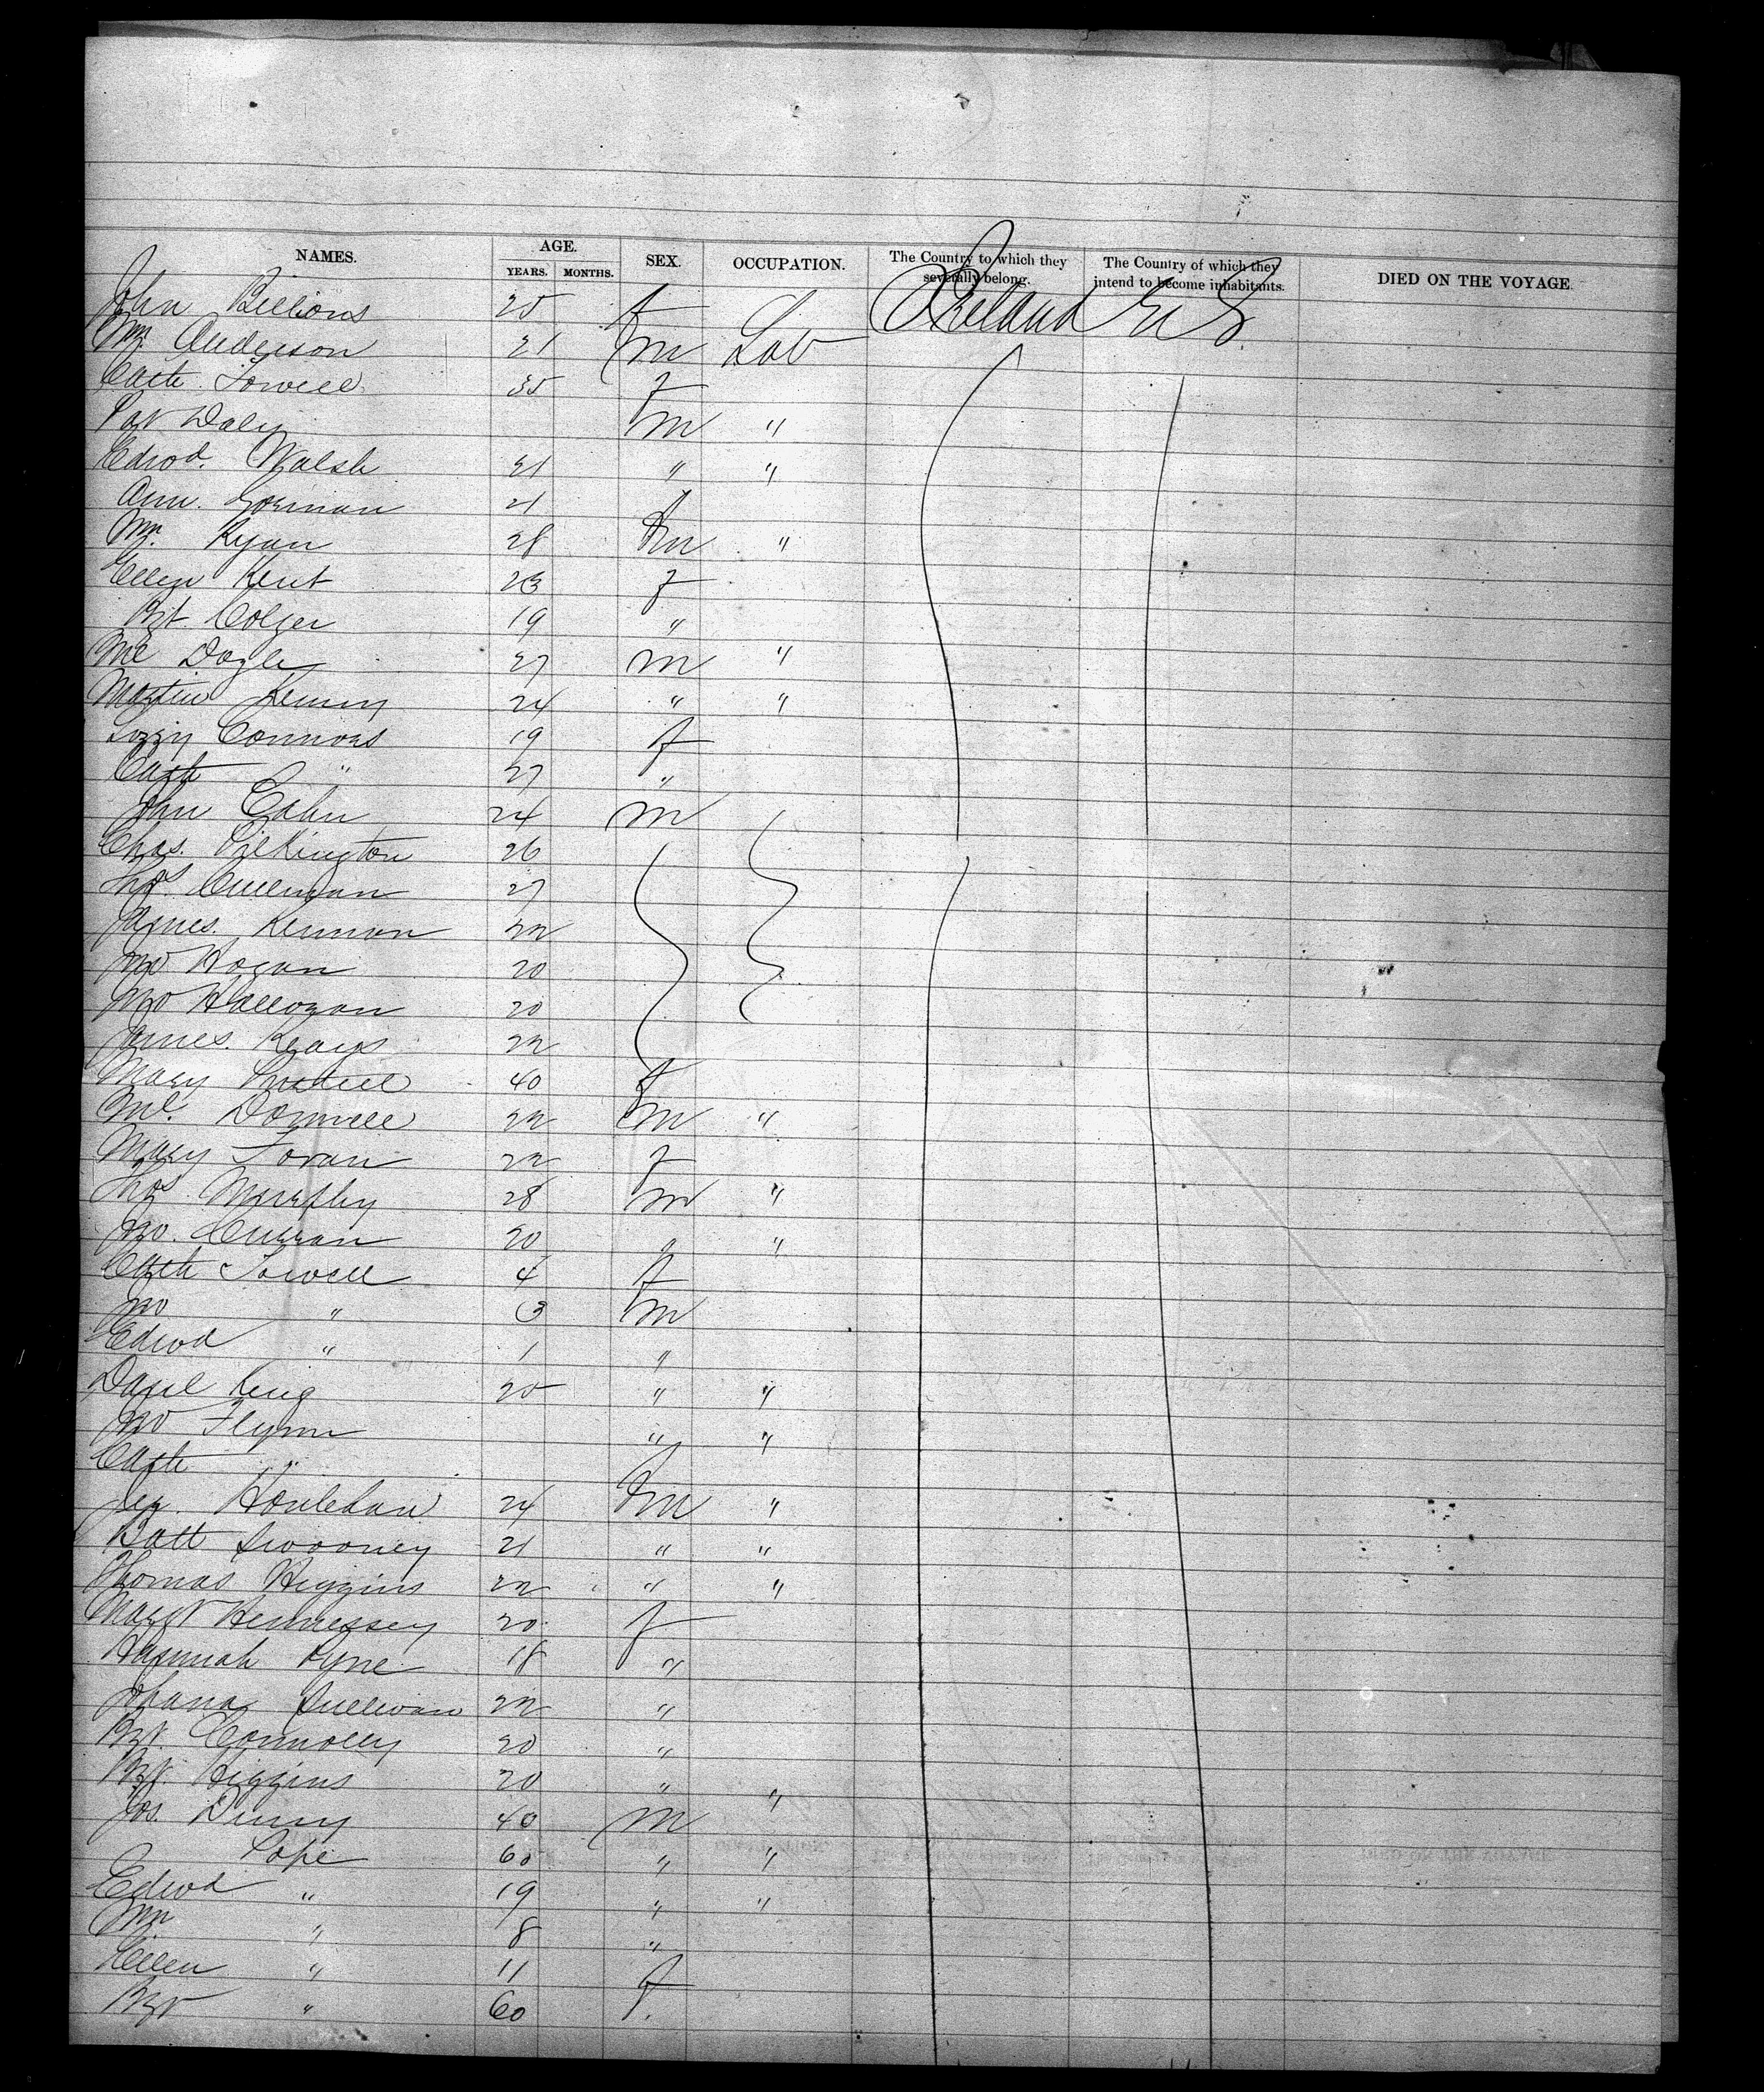 NAMES. AGE. SEX. OCCUPATION. The Country to which they severally belong. The Country of which they intend to become inhabitants. DIED ON THE VOYAGE.
YEARS. MONTHS.
John Billions 25 f Ireland U S
Wm. Anderson 21 m Lab
Cath. Towell 35 f
Pat Daly m "
Edwd. Walsh 21 " "
Ann. Gorman 21 f
Wm. Ryan 28 m "
Ellen Kent 23 f
Bgt. Bolger 19 "
Ml Doyle 27 m "
Martin Kenny 24 " "
Lizzy Connors 19 f
Cath " 27 "
John Cahn 24 m
Chas. Pilkington 26
Thos. Cullinan 27
James. Kennon 22
Jno Hogan 20
Jno Halloran 20
James. Keays 22
Mary 40 f
Ml. Donnell 22 m "
Mary Foran 22 f
Thos. Murphy 28 m "
Jno. Curran 20 " "
Cath Towell 4 f
Jno " 3 m
Edwd " 1 "
Danl King 20 " "
Jno Flynn " "
Cath " f
Jer. Houlehan 24 m "
Batt Swooney 21 " "
Thomas Higgins 22 " "
Margt Hennessey 20 f
Hannah Pyne 18 "
Johana Sullivan 22 "
Bgt. Connolly 20 "
Bgt. Higgins 20 " "
Jos. Dinny 40 m
Pope 60 " "
Edwd " 19 " "
Wm " 8 "
Ellen " 11 f
Bgt " 60 f.